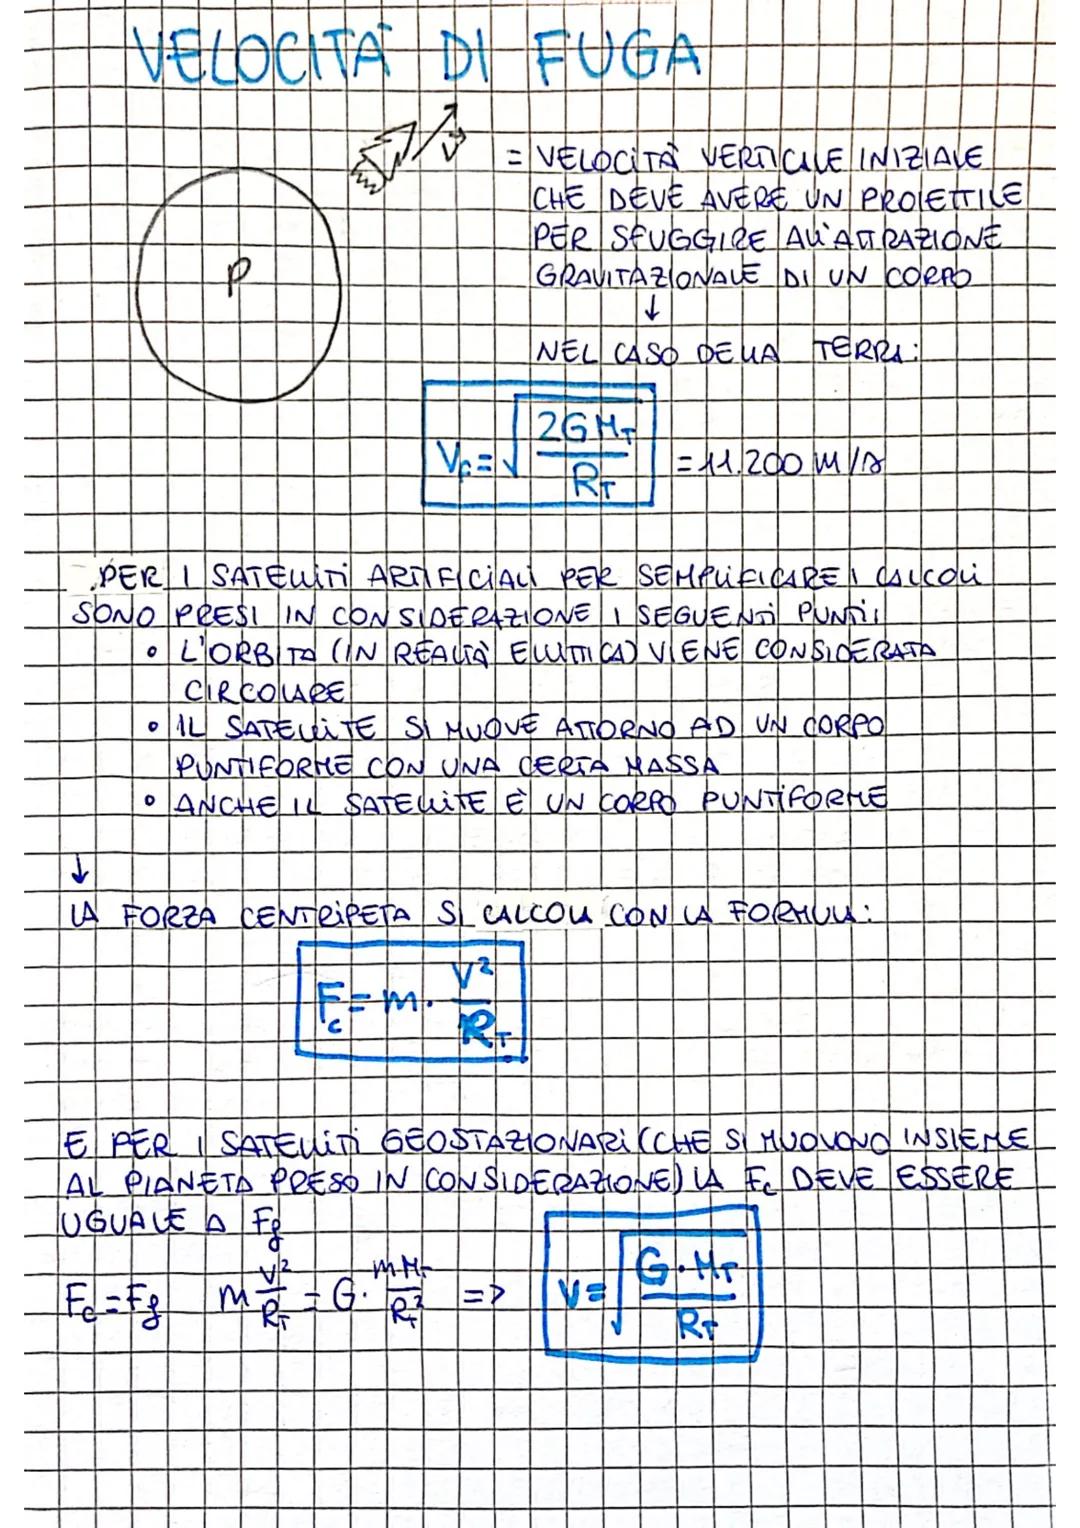 VELOCITÀ DI FUGA
V
= VELOCITÀ VERTICALE INIZIALE
CHE DEVE AVERE UN PROIETTILE
PER SFUGGIRE ALL'ATTRAZIONE
GRAVITAZIONALE DI UN CORPO
P
↓
NEL CASO DELLA TERRA:
V_F = √(2GM_T / R_T) = 11.200 m/s
PER I SATELLITI ARTIFICIALI PER SEMPLIFICARE I CALCOLI
SONO PRESI IN CONSIDERAZIONE I SEGUENTI PUNTI:
• L'ORBITA (IN REALTÀ ELLITTICA) VIENE CONSIDERATA
CIRCOLARE
• IL SATELLITE SI MUOVE ATTORNO AD UN CORPO
PUNTIFORME CON UNA CERTA MASSA
• ANCHE IL SATELLITE È UN CORPO PUNTIFORME
↓
LA FORZA CENTRIPETA SI CALCOLA CON LA FORMULA:
F_c = m · V² / R_T
E PER I SATELLITI GEOSTAZIONARI (CHE SI MUOVONO INSIEME
AL PIANETA PRESO IN CONSIDERAZIONE) LA F_c DEVE ESSERE
UGUALE A F_g
F_c = F_g m V²/R_T = G · mM_T/R_T² => V = √(G · M_T / R_T)